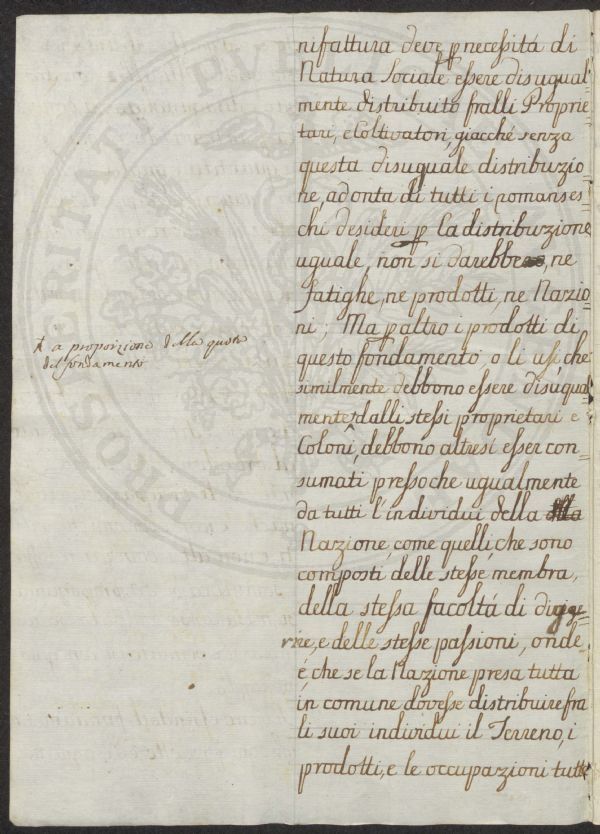 nifattura deve p necessitá di
Natura Sociale essere disugual=
mente distribuito fralli Proprie=
tari, e Coltivatori, giacché senza
questa disuguale distribuzio=
ne, ad onta di tutti i romanses=
chi desideri p la distribuzione
uguale, non si darebbe, ne
fatighe, ne prodotti, ne Nazio=
ni; Ma p altro i prodotti di
questo fondamento o li usi che
similmente debbono essere disugual=
mente dalli stessi proprietari e
Coloni, debbono altresi esser con=
sumati pressoche ugualmente
da tutti l'individui della
Nazione, come quelli, che sono
composti delle stesse membra,
della stessa facoltá di digge=
rire, e delle stesse passioni, onde
é, che se la Nazione presa tutta
in comune dovesse distribuire fra
li suoi individui il Terreno, i
prodotti, e le occupazioni tutte
a proporzione delle quote
del fondamento
PROSPERITATI PUBLICAE